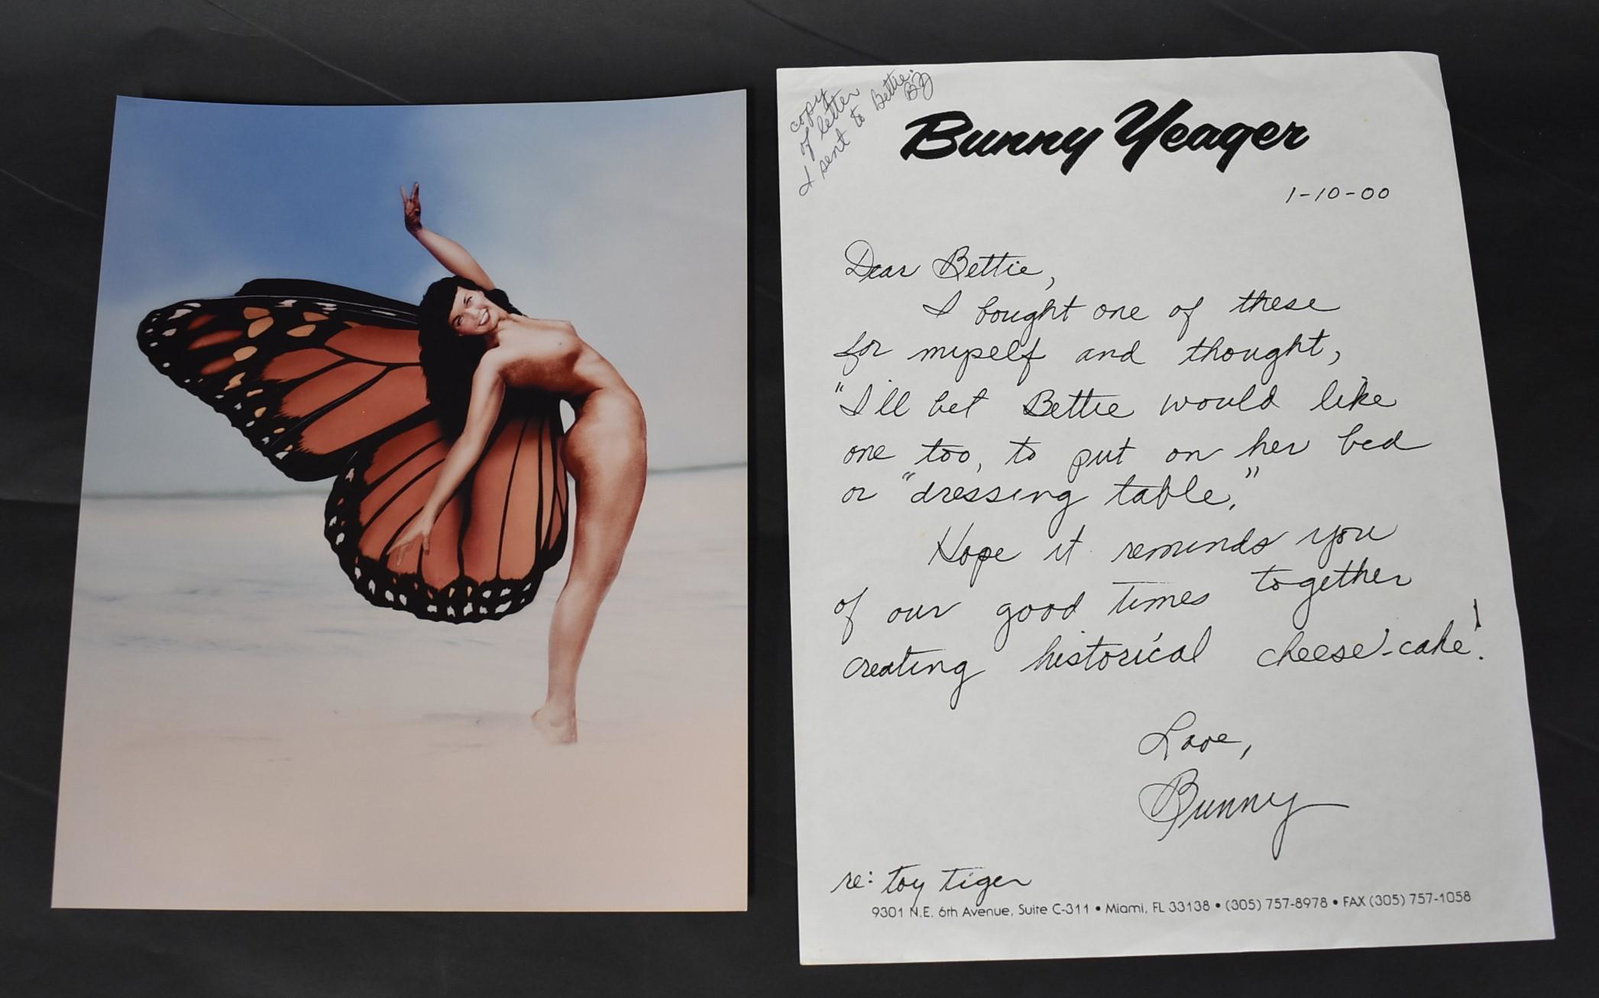 copy
of letter
I sent to Bettie.
BY
Bunny Yeager
1-10-00
Dear Bettie,
I bought one of these
for myself and thought,
"I'll bet Bettie would like
one too, to put on her bed
or "dressing table."
Hope it reminds you
of our good times together
creating historical cheese-cake!
Love,
Bunny
re: toy tiger
9301 N.E. 6th Avenue, Suite C-311 • Miami, FL 33138 • (305) 757-8978 • FAX (305) 757-1058